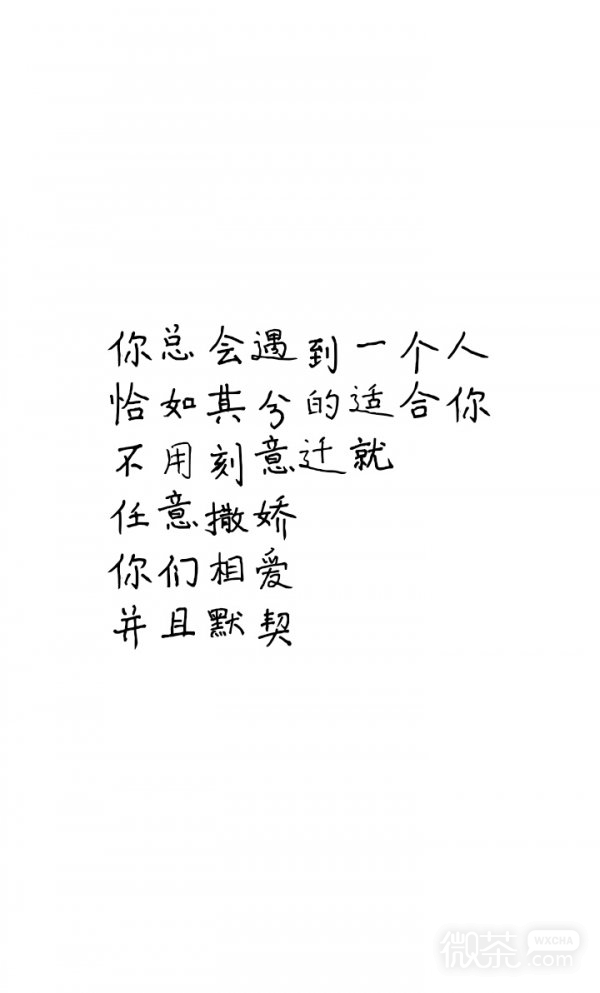 你总会遇到一个人
恰如其分的适合你
不用刻意迁就
任意撒娇
你们相爱
并且默契
微茶 WXCHA